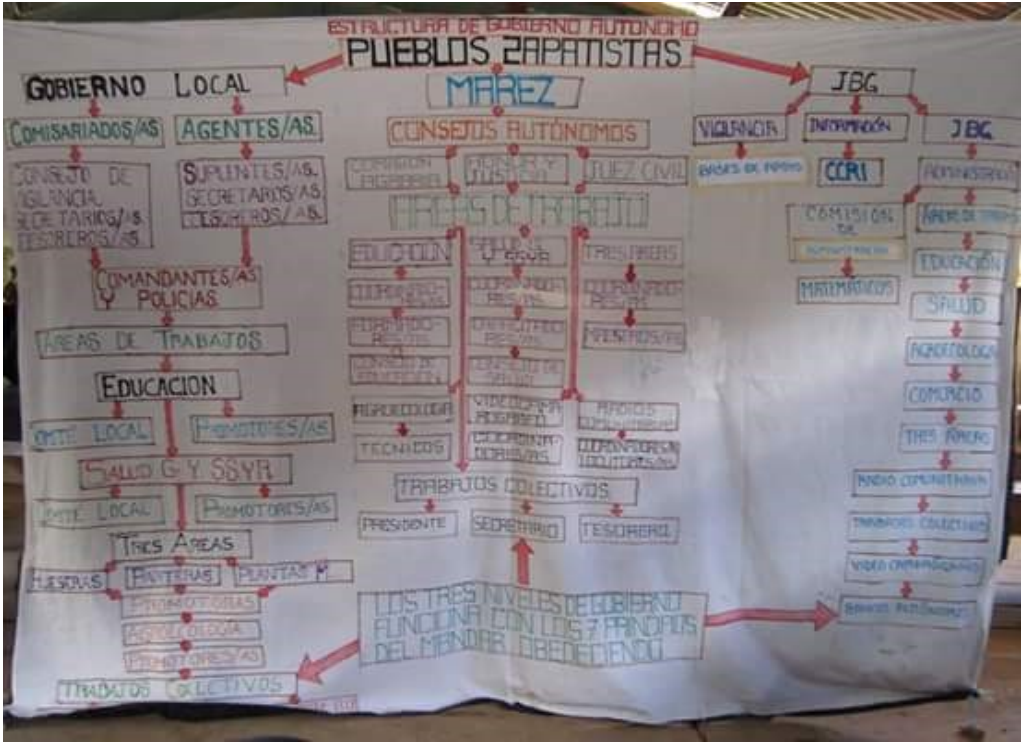 ESTRUCTURA DE GOBIERNO AUTONOMO
PUEBLOS ZAPATISTAS
GOBIERNO LOCAL
COMISARIADOS/AS
AGENTES/AS.
CONSEJO DE
VIGILANCIA
SECRETARIOS/AS.
TESOREROS/AS.
SUPLENTES/AS.
SECRETARIOS/AS.
TESOREROS/AS.
COMANDANTES/AS
Y POLICIAS.
AREAS DE TRABAJOS
EDUCACION
COMITE LOCAL
PROMOTORES/AS
SALUD G. Y SSYR.
COMITE LOCAL
PROMOTORES/AS
TRES AREAS
HUESERAS
PARTERAS
PLANTAS M
PROMOTORAS
AGROECOLOGÍA
PROMOTORES/AS
TRABAJOS COLECTIVOS
MAREZ
CONSEJOS AUTÓNOMOS
COMISION
AGRARIA
HONOR Y
JUSTICIA
JUEZ CIVIL
AREAS DE TRABAJO
EDUCACION
COORDINADO-
RES/AS
FORMADO-
RES/AS
CONSEJO DE
EDUCACION
SALUD G.
COORDINADO-
RES/AS
CAPACITADO
RES/AS
CONSEJO DE
SALUD
TRES AREAS
COORDINADO-
RES/AS
MAESTROS/AS
AGROECOLOGIA
TECNICOS
COORDINA-
DORES/AS
RADIOS
COMUNITARIAS
COORDINADORES/AS
LOCUTORES/AS
TRABAJOS COLECTIVOS
PRESIDENTE
SECRETARIO
TESORERO
LOS TRES NIVELES DE GOBIERNO
FUNCIONA CON LOS 7 PRINCIPIOS
DEL MANDAR OBEDECIENDO
JBG
VIGILANCIA
INFORMACIÓN
JBG
BASES DE APOYO
CCRI
COMISION
DE
MATEMÁTICOS
AREAS DE TRABAJO
EDUCACIÓN
SALUD
AGROECOLOGIA
COMERCIO
TRES AREAS
RADIO COMUNITARIA
TRABAJOS COLECTIVOS
BANCOS AUTÓNOMOS